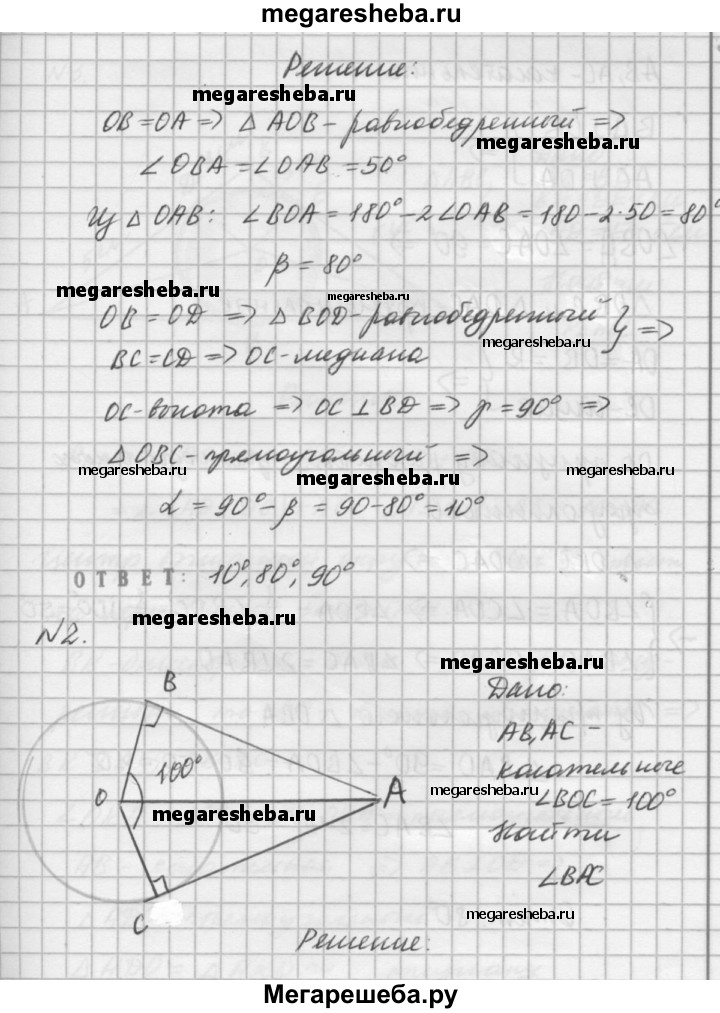 megaresheba.ru
Решение:
megaresheba.ru
OB=OA => △ AOB - равнобедренный =>
megaresheba.ru
∠OBA = ∠OAB = 50°
Из △ OAB: ∠BOA = 180° - 2∠OAB = 180 - 2·50 = 80°
β = 80°
megaresheba.ru
megaresheba.ru
OB = OD => △ BOD - равнобедренный } =>
megaresheba.ru
BC = CD => OC - медиана
OC - высота => OC ⊥ BD => γ = 90° =>
△ OBC - прямоугольный =>
megaresheba.ru
megaresheba.ru
megaresheba.ru
α = 90° - β = 90 - 80° = 10°
ОТВЕТ: 10°, 80°, 90°
megaresheba.ru
N2.
megaresheba.ru
B
Дано:
AB, AC -
100°
касательные
megaresheba.ru
O
A
∠BOC = 100°
megaresheba.ru
Найти
∠BAC
C
megaresheba.ru
Решение:
Мегарешеба.ру